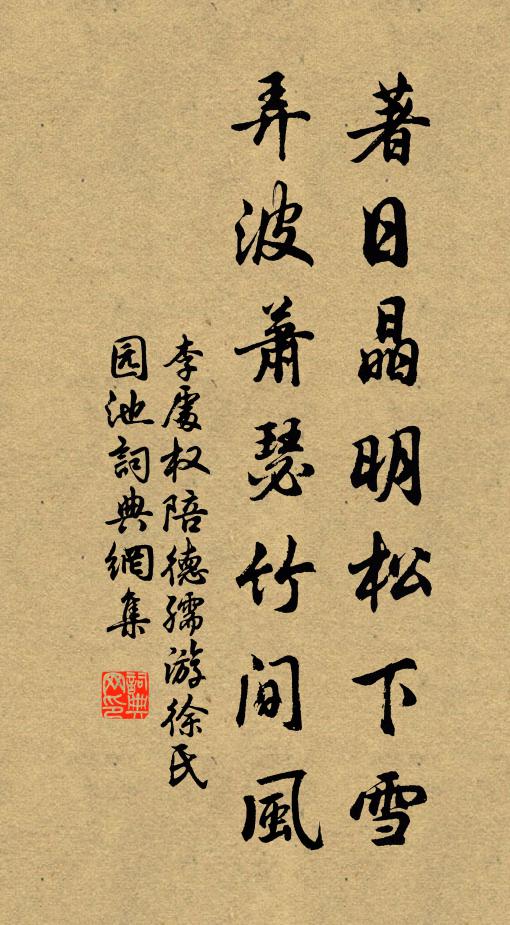 著日晶明松下雪
弄波蕭瑟竹間風
李處权陪德孺游徐氏
园池詞典網集
詞典
网印